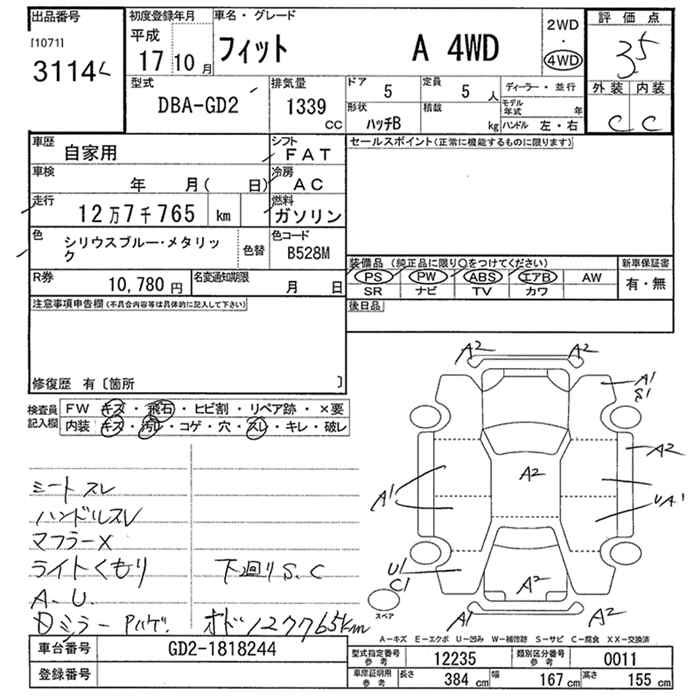 出品番号
[1071]
3114
初度登録年月
平成
17 10 月
車名・グレード
フィット A 4WD
2WD
・
4WD
評価点
3.5
外装 内装
C C
型式
DBA-GD2
排気量
1339 CC
ドア 5
定員 5 人
形状 ハッチB
積載 kg
ディーラー・並行
モデル年式 年
ハンドル 左・右
車歴 自家用
シフト FAT
車検 年 月( 日)
冷房 AC
走行 12万7千765 km
燃料 ガソリン
色 シリウスブルー・メタリック
色替
色コード B528M
R券 10,780 円
名変通知期限 月 日
セールスポイント(正常に機能するものに限ります)
装備品 (純正品に限り〇をつけてください)
PS PW ABS エアB AW
SR ナビ TV カワ
新車保証書
有・無
後日品
注意事項申告欄(不具合内容等は具体的に記入して下さい)
修復歴 有 [箇所 ]
検査員記入欄
FW キズ・飛石・ヒビ割・リペア跡・×要
内装 キズ・汚レ・コゲ・穴・スレ・キレ・破レ
シート スレ
ハンドルスレ
マフラーX
ライトくもり
下回りS.C
A.U.
ミラー Pハゲ
オド127765km
A2 A2
A1
S1
A2
A2
A1
UA1
U1
C1
A2
A1 A2
スペア
A-キズ E-エクボ U-凹み W-補修跡 S-サビ C-腐食 XX-交換済
車台番号 GD2-1818244
登録番号
型式指定番号 参考 12235
類別区分番号 参考 0011
車庫証明用 参考 長さ 384 cm 幅 167 cm 高さ 155 cm